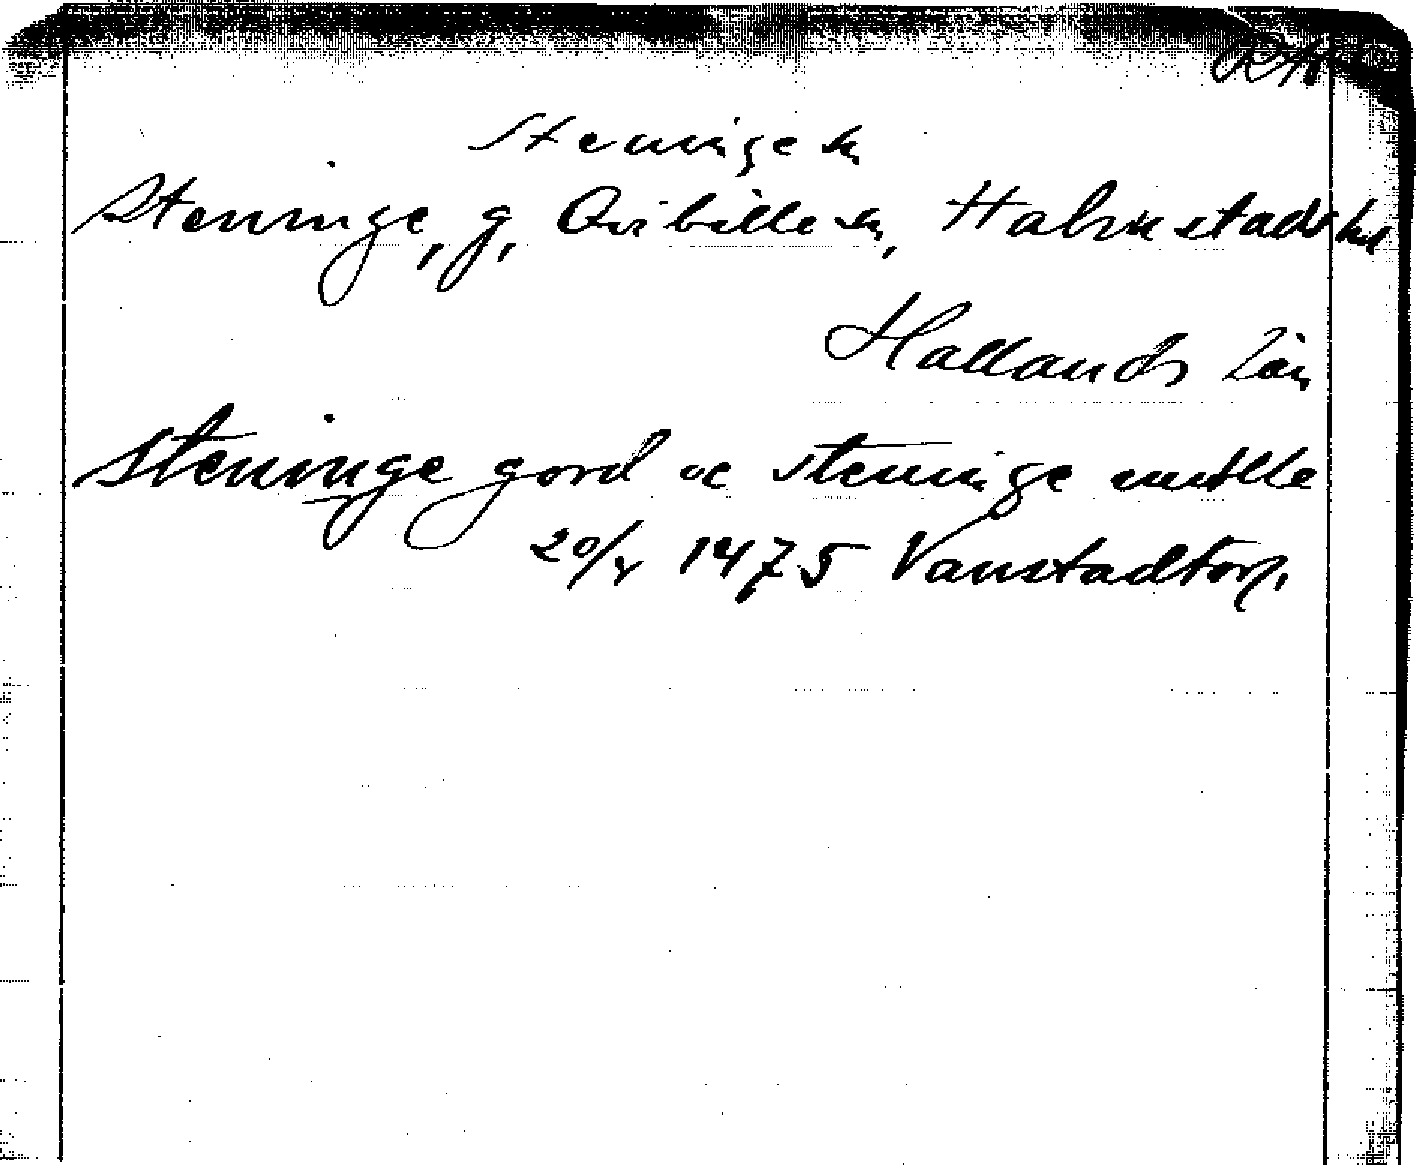 RA
Steninge sn
Steninge, g, Qvibille sn, Halmstads hd
Hallands län
Steninge gord oc steninge mölle
20/8 1475 Vanstadtorp.